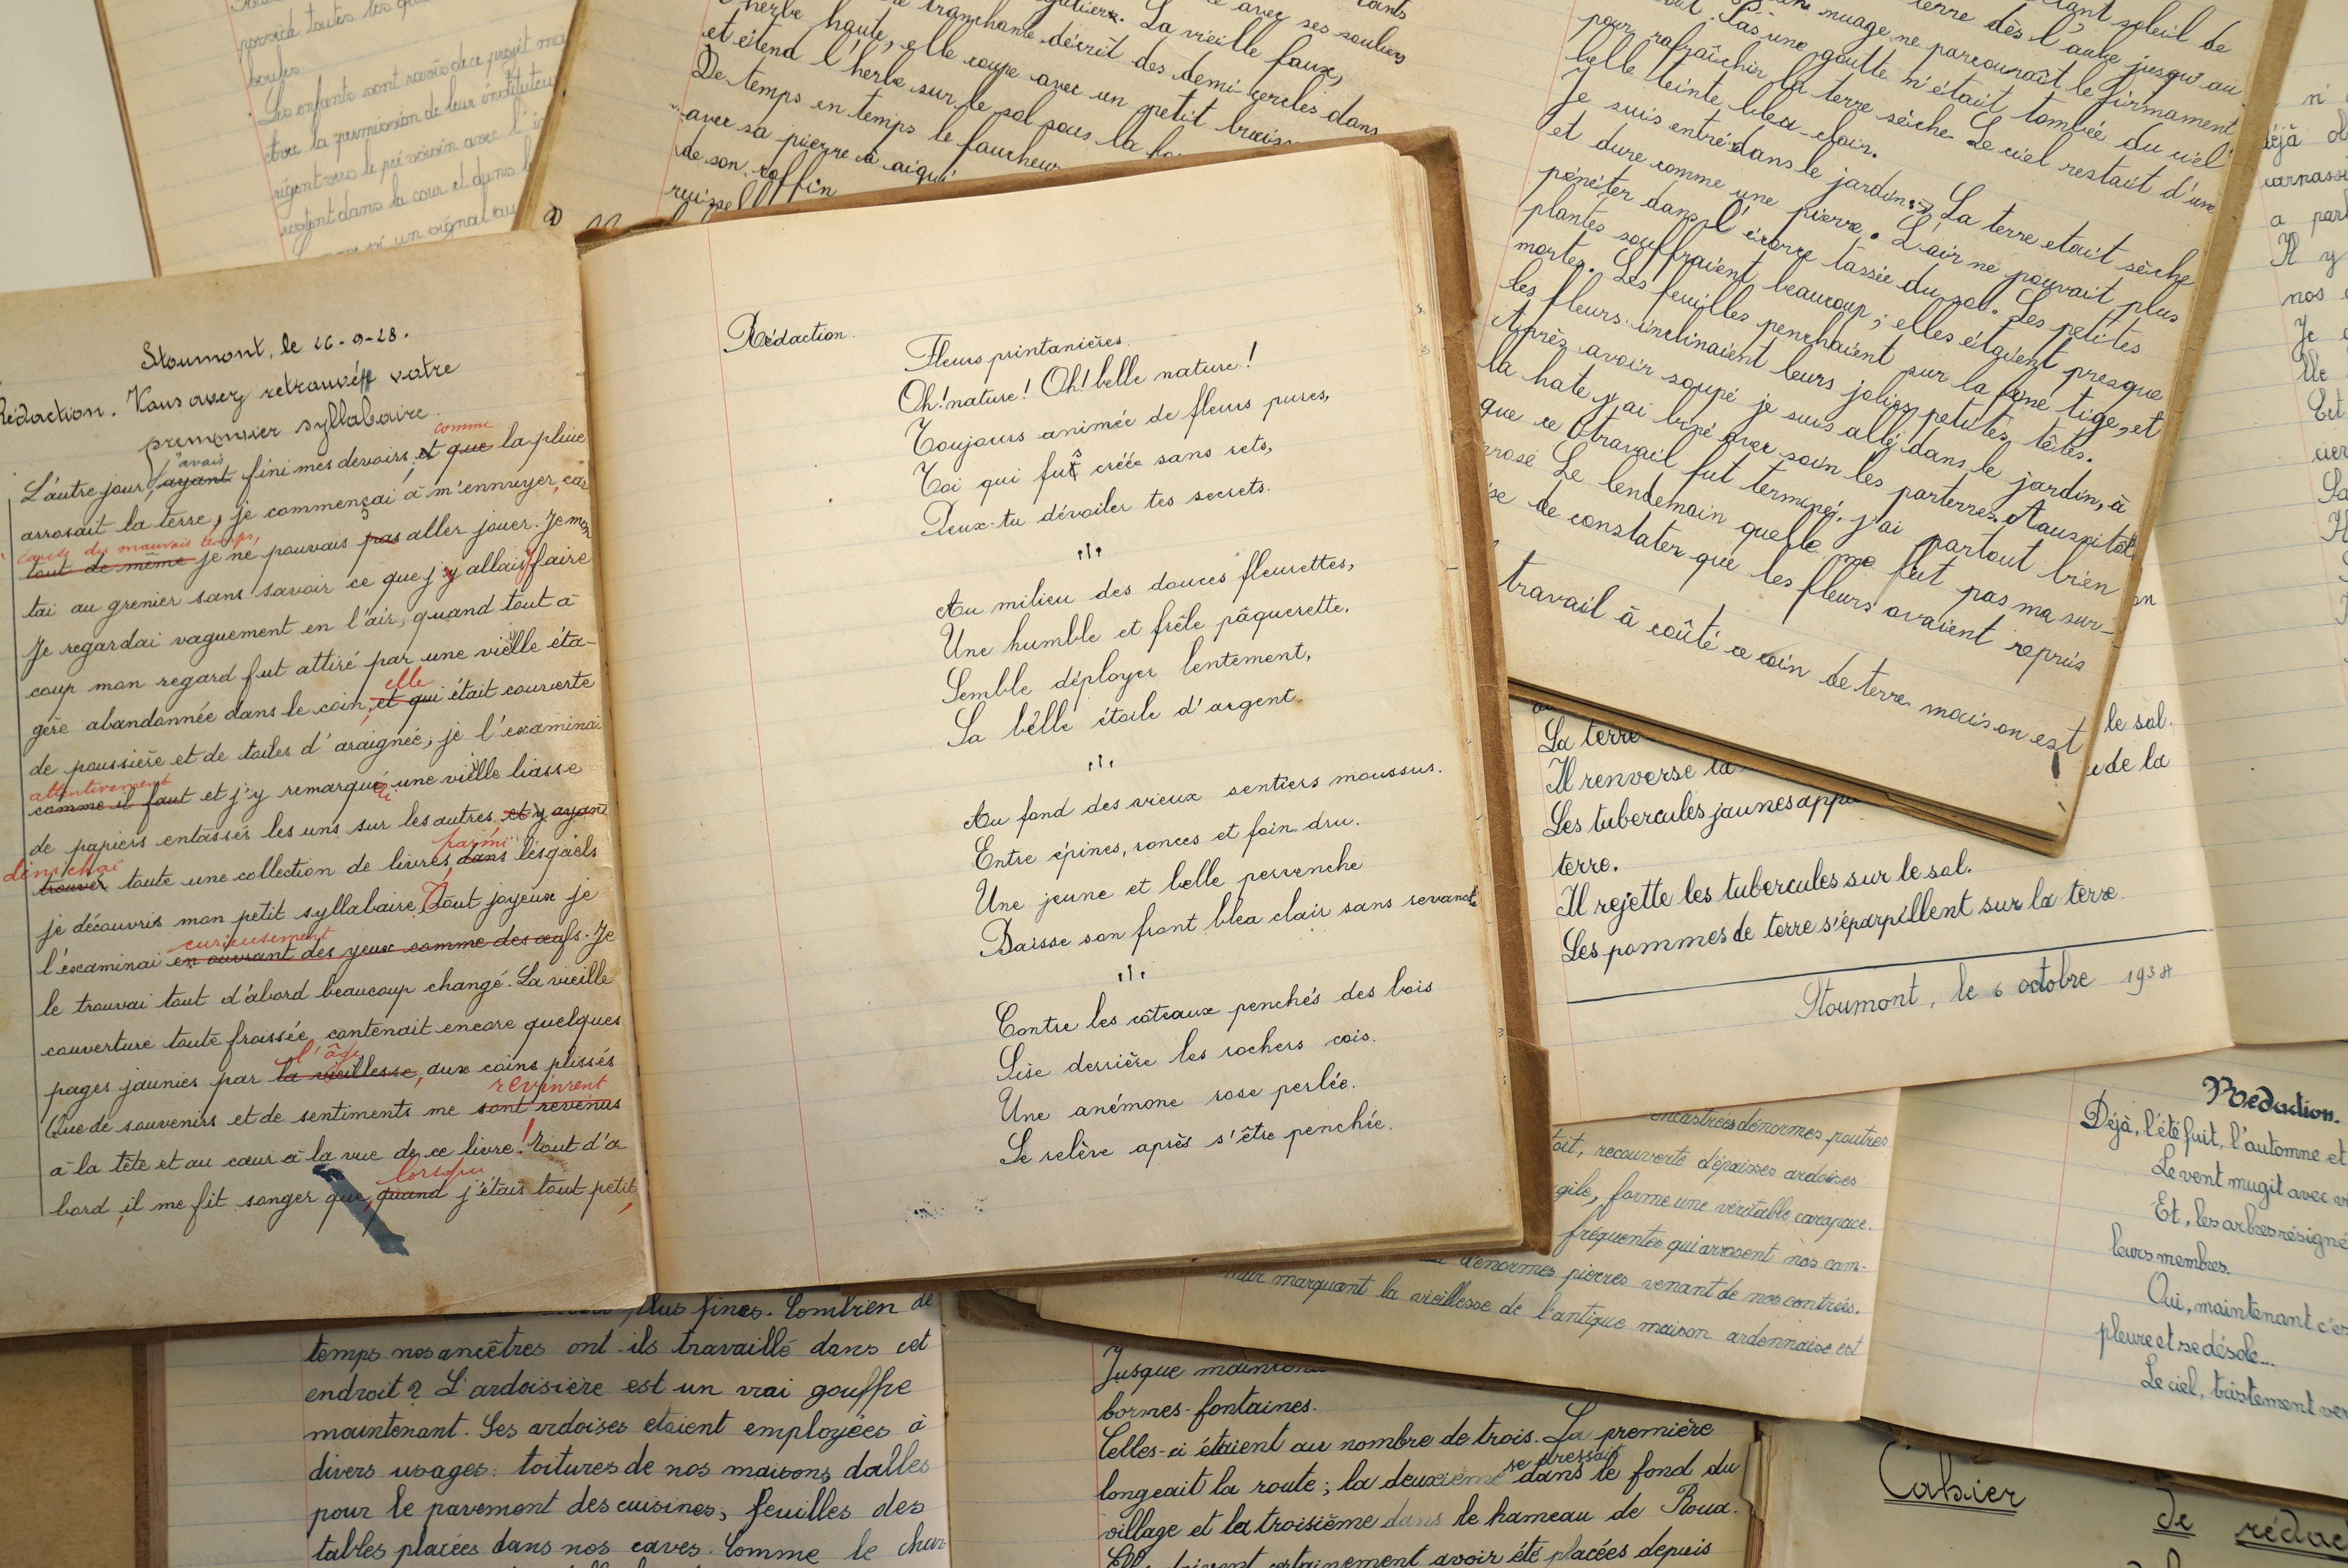 possède toutes les
boules.
Les enfants sont ravis de ce projet
Avec la permission de leur instituteur
rigent vers le
dans la cour et dans
un signal
avec ses souliers
La vieille faux,
tranchante décrit des demi-cercles dans
l'herbe haute, elle coupe avec un petit
et étend l'herbe sur le sol sous la
De temps en temps le faucheur
avec sa pierre à
de son
soleil de
terre dès l'aube jusqu'au
nuage ne parcourait le firmament
Pas une goutte n'était tombée du ciel
pour rafraîchir la terre sèche. Le ciel restait d'une
belle teinte bleu-clair.
Je suis entré dans le jardin. La terre etait sèche
et dure comme une pierre. L'air ne pouvait plus
pénéter dans l'écorce tassée du sol. Les petites
plantes souffraient beaucoup; elles étaient presque
mortes. Les feuilles penchaient sur la tige, et
les fleurs inclinaient leurs jolies petites têtes.
Après avoir soupé je suis allé dans le jardin, à
la hate j'ai biné avec soin les parterres. Aussitôt
que ce travail fut terminé, j'ai partout bien
arrosé Le lendemain quelle ne fut pas ma sur-
ise de constater que les fleurs avaient repris
travail à coûté ce coin de terre. maison est
Stoumont, le 26-9-28.
Rédaction. Vous avez retrouvé votre
premier syllabaire.
comme
j'avais
L'autre jour, ayant fini mes devoirs, et que la pluie
arrosait la terre, je commençai à m'ennuyer, car
cause du mauvais temps,
tout de même je ne pouvais pas aller jouer. Je mon
tai au grenier sans savoir ce que j'y allais faire
Je regardai vaguement en l'air, quand tout à
coup mon regard fut attiré par une vieille éta-
elle
gère abandonnée dans le coin, et qui était couverte
de poussière et de toiles d'araignée, je l'examinai
attentivement
comme il faut et j'y remarquai une vieille liasse
de papiers entassés les uns sur les autres et y ayant
dénichai
parmi
trouver toute une collection de livres, dans lesquels
je découvris mon petit syllabaire. Tout joyeux je
curieusement
l'examinai en ouvrant des yeux comme des œufs. Je
le trouvai tout d'abord beaucoup changé. La vieille
couverture toute froissée, contenait encore quelques
l'âge
pages jaunies par la vieillesse, aux coins plissés
revinrent
Que de souvenirs et de sentiments me sont revenus
à la tête et au cœur à la vue de ce livre! Tout d'a
lorsque
bord, il me fit songer que, quand j'étais tout petit,
Rédaction.
Fleurs printanières.
Oh! nature! Oh! belle nature!
Toujours animée de fleurs pures,
Toi qui fus créée sans rets,
Peux-tu dévoiler tes secrets.
Au milieu des douces fleurettes,
Une humble et frêle pâquerette.
Semble déployer lentement,
Sa belle étoile d'argent.
Au fond des vieux sentiers moussus.
Entre épines, ronces et foin dru.
Une jeune et belle pervenche
Baisse son front bleu clair sans revanche
Contre les côteaux penchés des bois
Sise derrière les rochers cois.
Une anémone rose perlée.
Se relève après s'être penchée.
La terre
le sol.
Il renverse la
de la
Les tubercules jaunes
terre.
Il rejette les tubercules sur le sol.
Les pommes de terre s'éparpillent sur la terre.
Stoumont, le 6 octobre 1938
encastrées d'énormes poutres
toit, recouverte d'épaisses ardoises
gile, forme une véritable carapace.
fréquentes qui arrosent nos cam-
d'énormes pierres venant de nos contrées.
marquant la vieillesse de l'antique maison ardennaise est
Redaction.
Déjà, l'été fuit, l'automne et
Le vent mugit avec
Et, les arbres résigné
leurs membres.
Oui, maintenant c'es
pleure et se désole...
Le ciel, tristement
plus fines. Combien de
temps nos ancêtres ont-ils travaillé dans cet
endroit? L'ardoisière est un vrai gouffre
maintenant. Ses ardoises etaient employées à
divers usages: toitures de nos maisons, dalles
pour le pavement des cuisines, feuilles des
tables placées dans nos caves. Comme le
Jusque
bornes-fontaines.
Celles-ci étaient au nombre de trois. La première
se dressait
longeait la route; la deuxième dans le fond du
village et la troisième dans le hameau de Roua.
certainement avoir été placées depuis
Cahier
de